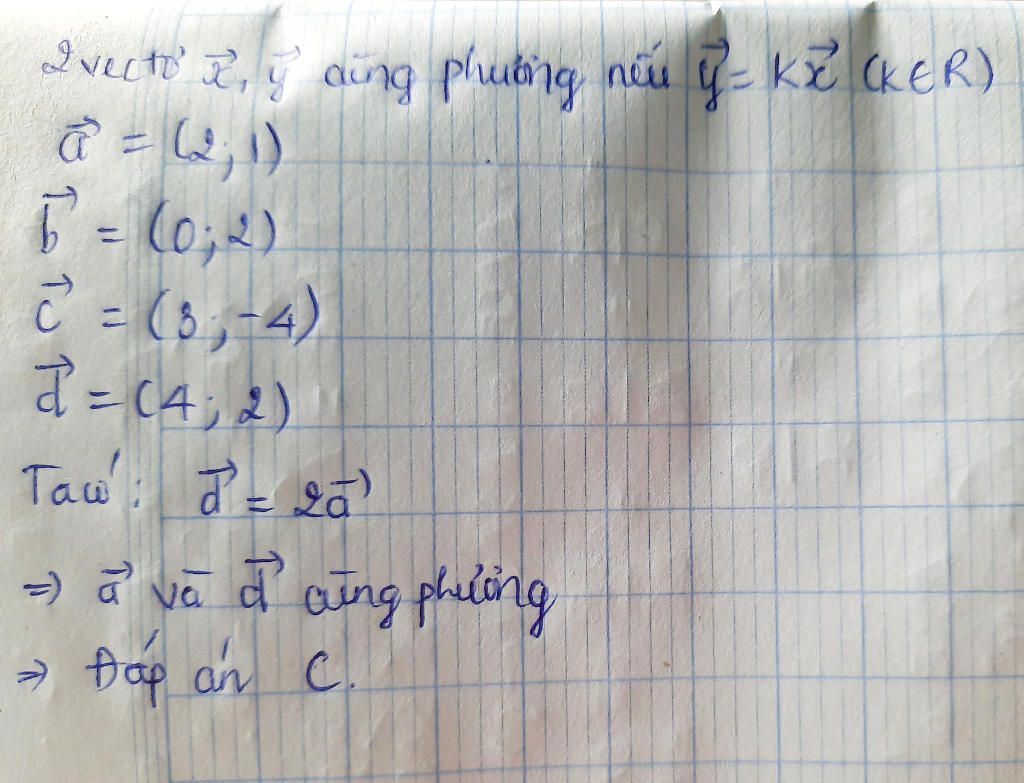 2 vectơ x⃗, y⃗ cùng phương nếu y⃗ = kx⃗ (k∈R)
a⃗ = (2; 1)
b⃗ = (0; 2)
c⃗ = (3; -4)
d⃗ = (4; 2)
Ta có: d⃗ = 2a⃗
=> a⃗ và d⃗ cùng phương
=> Đáp án C.